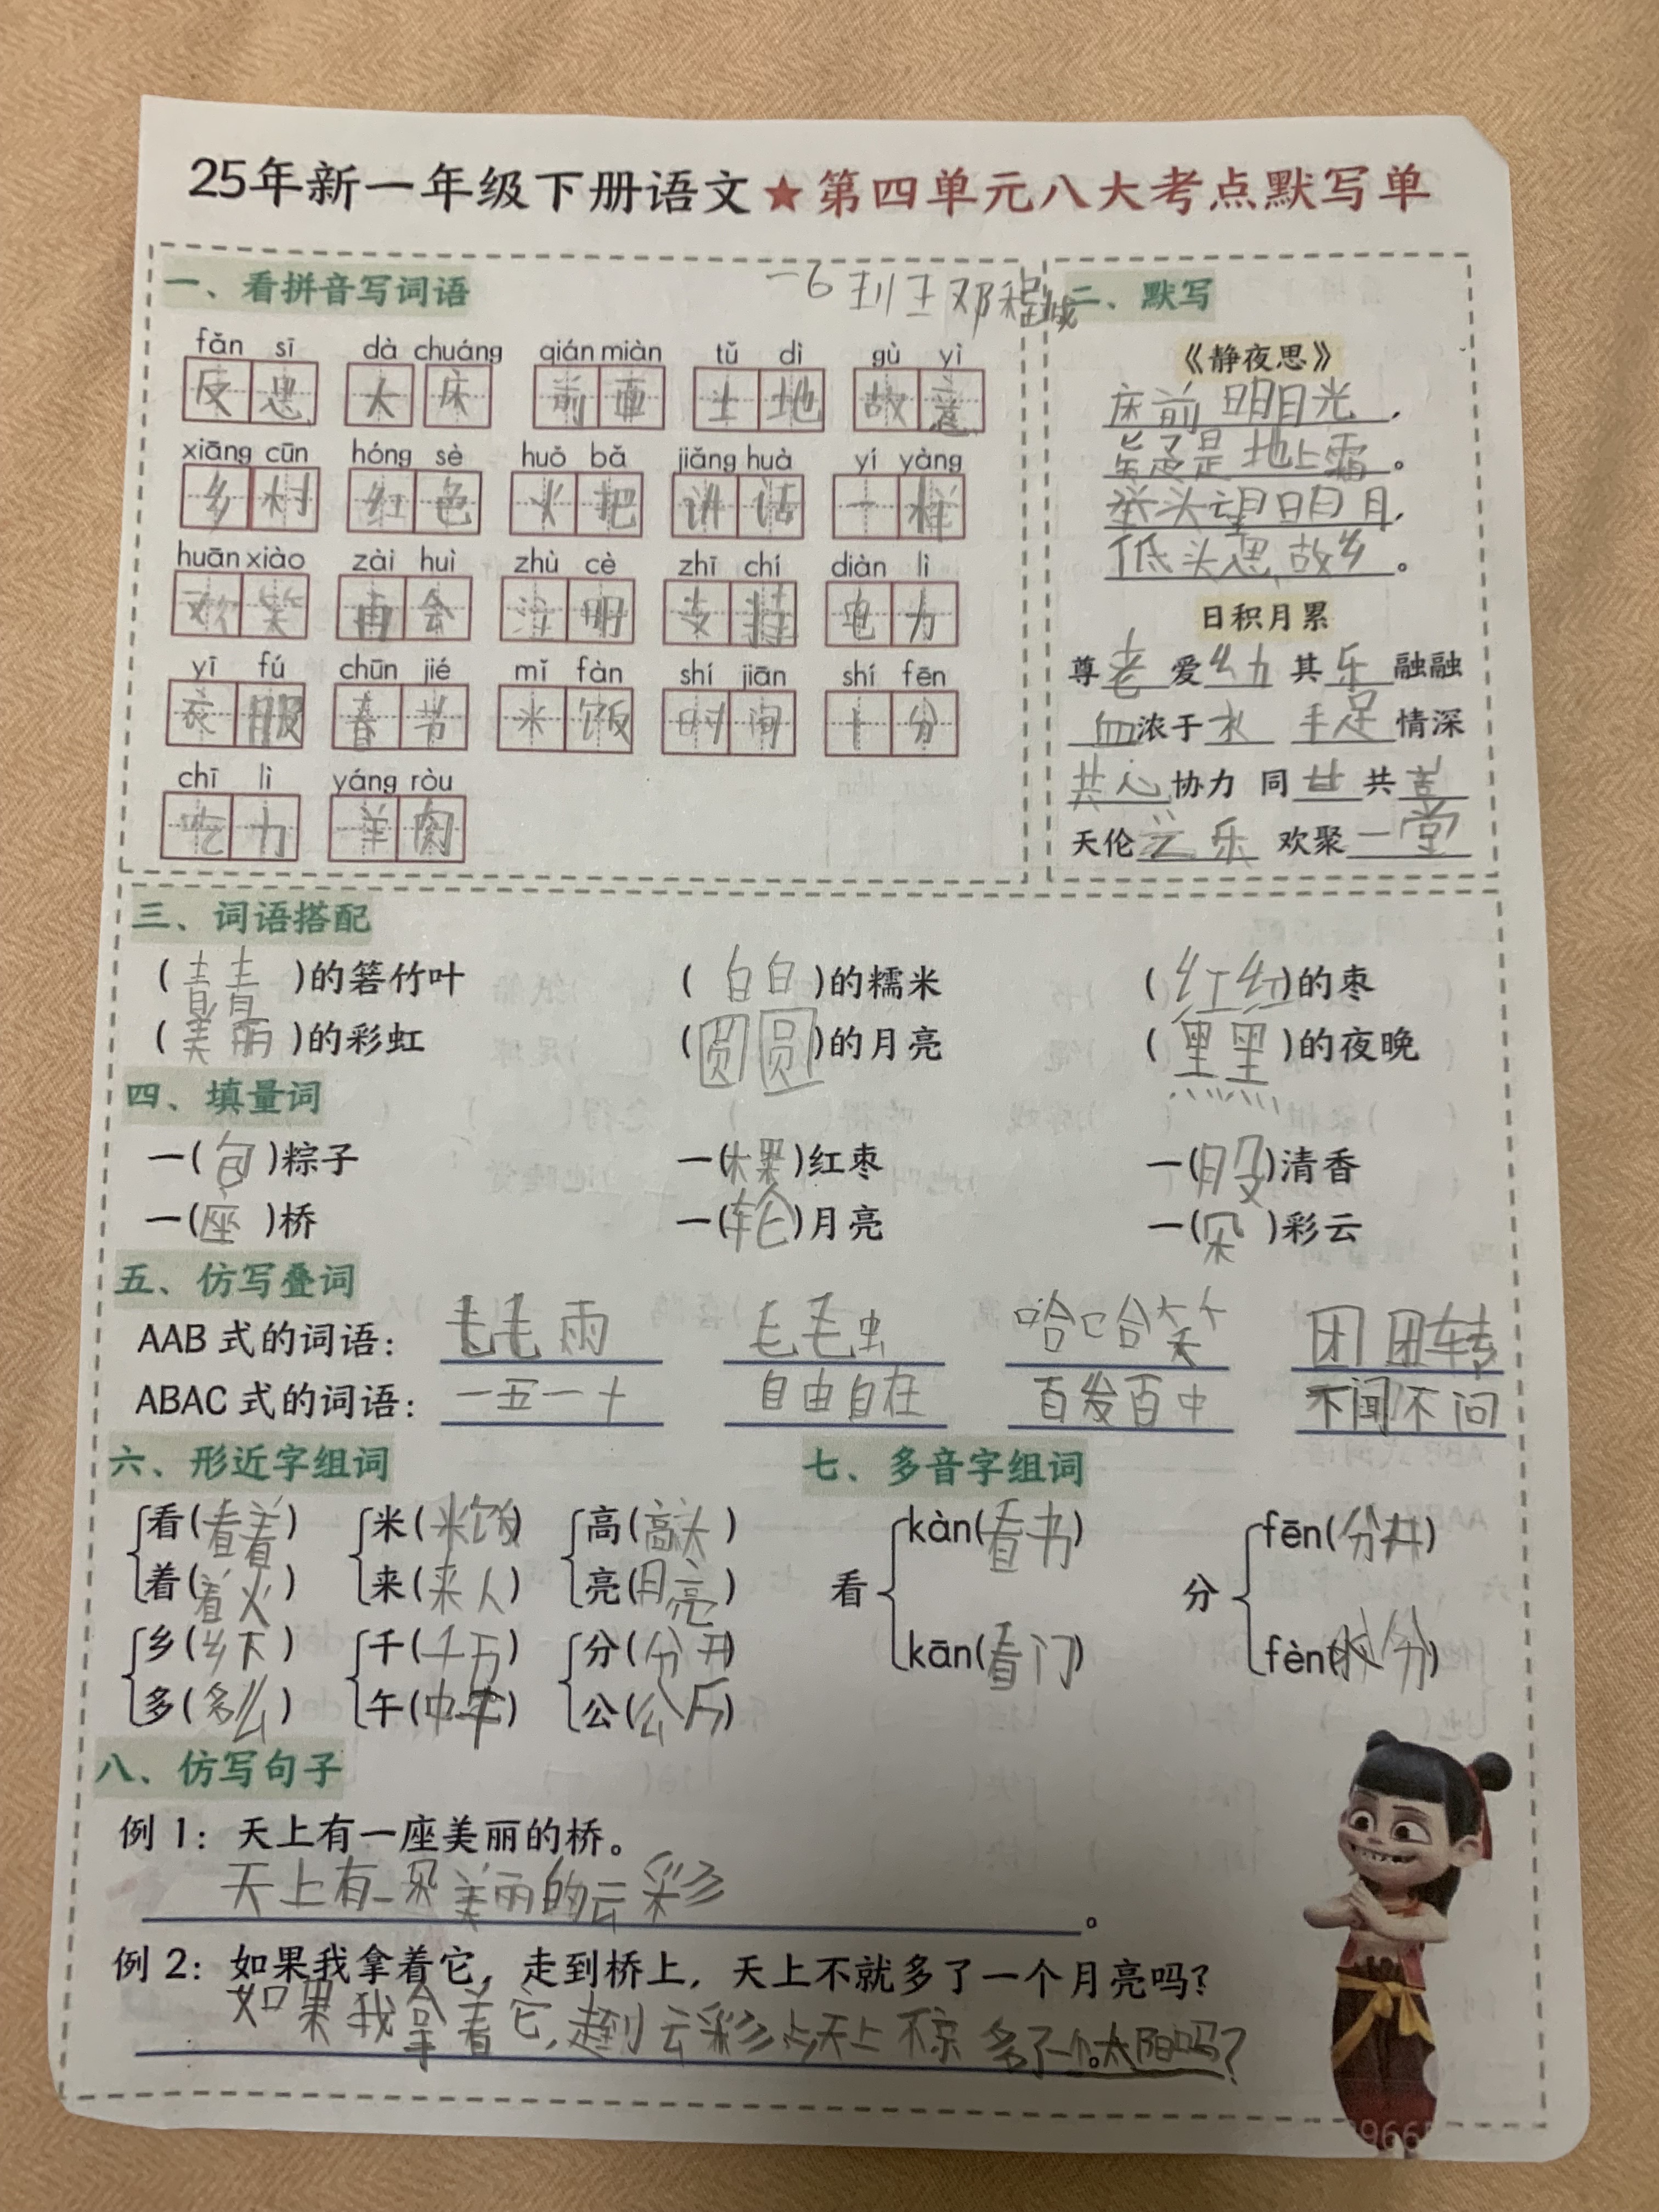 25年新一年级下册语文★第四单元八大考点默写单
一、看拼音写词语
一6
fǎn sī dà chuáng qián miàn tǔ dì gù yì
反思 大床 前面 土地 故意
xiāng cūn hóng sè huǒ bǎ jiǎng huà yí yàng
乡村 红色 火把 讲话 一样
huān xiào zài huì zhù cè zhī chí diàn lì
欢笑 再会 注 支持 电力
yī fú chūn jié mǐ fàn shí jiān shí fēn
衣服 春节 米饭 时间 十分
chī lì yáng ròu
吃力 羊肉
二、默写
《静夜思》
床前明月光,
疑是地上霜。
举头望明月,
低头思故乡。
日积月累
尊老爱幼 其乐融融
血浓于水 手足情深
共心协力 同甘共苦
天伦之乐 欢聚一堂
三、词语搭配
(青青)的箬竹叶 (白白)的糯米 (红红)的枣
(美丽)的彩虹 (圆圆)的月亮 (黑黑)的夜晚
四、填量词
一(包)粽子 一(棵)红枣 一(股)清香
一(座)桥 一(轮)月亮 一(朵)彩云
五、仿写叠词
AAB 式的词语: 毛毛雨 毛毛虫 哈哈笑 团团转
ABAC 式的词语: 一五一十 自由自在 百发百中 不闻不问
六、形近字组词
看(看着) 米(米饭) 高(高大)
着(着火) 来(来人) 亮(月亮)
乡(乡下) 千(千万) 分(分开)
多(多么) 午(中午) 公(公斤)
七、多音字组词
看 kàn(看书) kān(看门)
分 fēn(分开) fèn(水分)
八、仿写句子
例 1: 天上有一座美丽的桥。
天上有一朵美丽的云彩。
例 2: 如果我拿着它,走到桥上,天上不就多了一个月亮吗?
如果我拿着它,到云彩上天上不多了一个太阳吗?